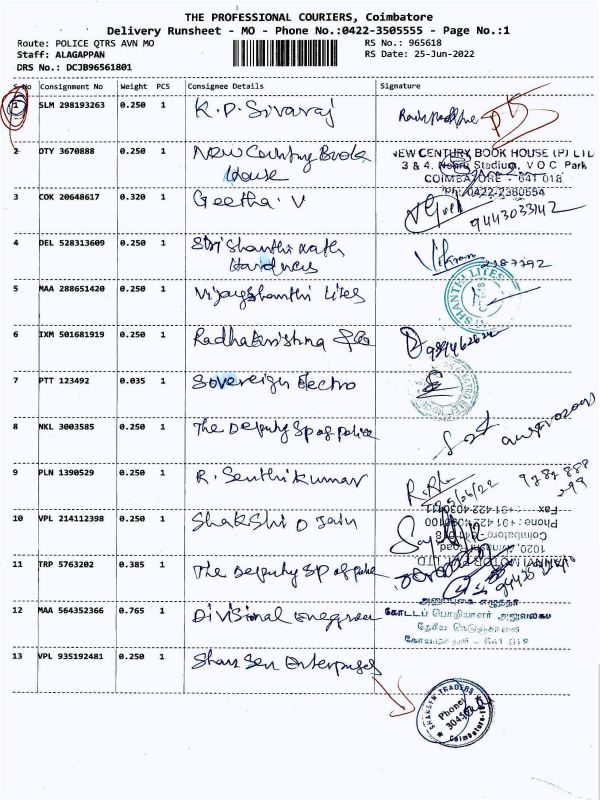 THE PROFESSIONAL COURIERS, Coimbatore
Delivery Runsheet - MO - Phone No.:0422-3505555 - Page No.:1
Route: POLICE QTRS AVN MO
RS No.: 965618
Staff: ALAGAPPAN
RS Date: 25-Jun-2022
DRS No.: DCJB96561801
S No Consignment No Weight PCS Consignee Details Signature
1 SLM 298193263 0.250 1 K.P. Sivaraj
2 OTY 3670888 0.250 1 New Country Book House
NEW CENTURY BOOK HOUSE (P) LTD
3 & 4, Nehru Stadium, V O C Park
COIMBATORE - 641 018
Ph: 0422-2380554
3 COK 20648617 0.320 1 Geetha. V
9443033142
4 DEL 528313609 0.250 1 Shanthi nath
5 MAA 288651420 0.250 1 Vijayshanthi Lites
SHANTHI LITES
6 IXM 501681919 0.250 1 Radhakrishna
7 PTT 123492 0.035 1 Sovereign Electro
8 NKL 3003585 0.250 1 The Deputy Sp of police
9 PLN 1390529 0.250 1 R. Senthilkumar
25/06/22
10 VPL 214112398 0.250 1 Shakshi D Jain
Fax : +91 422 4030111
Phone : +91 422 4030100
Coimbatore
1020, Avinashi Road
11 TRP 5763202 0.385 1 The Deputy SP of police
12 MAA 564352366 0.765 1 Divisional
கோட்டப் பொறியாளர் அலுவலகம்
641 018
13 VPL 935192481 0.250 1 Shan Sen Enterprises
SHANSEN TRADERS
Phone:
Coimbatore